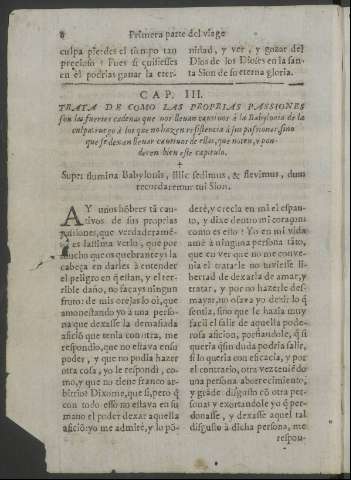 8 Primera parte del viage
culpa pierdes el tiempo tan
precioso? Pues si quisiesses
en el podrias ganar la eter-
nidad, y ver, y gozar del
Dios de los Dioses en la san-
ta Sion de su eterna gloria.
CAP. III.
TRATA DE COMO LAS PROPRIAS PASSIONES
son las fuertes cadenas que nos lleuan cautiuos à la Babylonia de la
culpa: ruego à los que no hazen resistencia à sus passiones, sino
que se dexan lleuar cautiuos de ellas, que noten, y pon-
deren bien este capitulo.
+
Super flumina Babylonis, illic sedimus, & flevimus, dum
recordaremur tui Sion.
AY unos hōbres tā cau-
tivos de sus proprias
passiones, que verdaderamē-
es lastima verlo, que por
mucho que os quebranteys la
cabeça en darles à entender
el peligro en q̃ estan, y el ter-
rible daño, no façays ningun
fruto: de mis orejas lo oi, que
amonestando yo à una perso-
na que dexasse la demasiada
aficiō que tenia con otra, me
respondio, que no estava en su
poder, y que no podia hazer
otra cosa, yo le respondi, co-
mo, y que no tiene franco ar-
bitrio? Dixome, que si, pero q̃
con todo esso no estava en su
mano el poder dexar aquella
aficiō: yo me admirè, y lo pō-
derè, y crecla en mi el espan-
to, y dixe dentro mi coraçon:
como es esto? Yo en mi vida
amè à ninguna persona tāto,
que en ver que no me conve-
nia el tratarle no tuviesse li-
bertad de dexarla de amar, y
tratar, y por no hazerle des-
mayar, no osava yo dezir lo q̃
sentia, sino que le hazia muy
facil el salir de aquella pode-
rosa aficion, posiandole, q̃ si
queria q̃ sin duda podria salir,
si lo queria con eficacia, y por
el contrario, otra vez teniēdo
una persona aborrecimiento,
y grāde disgusto cō otra per-
sona: y exortandole yo q̃ per-
donasse, y dexasse aquel tal
disgusto à dicha persona, me
respon-